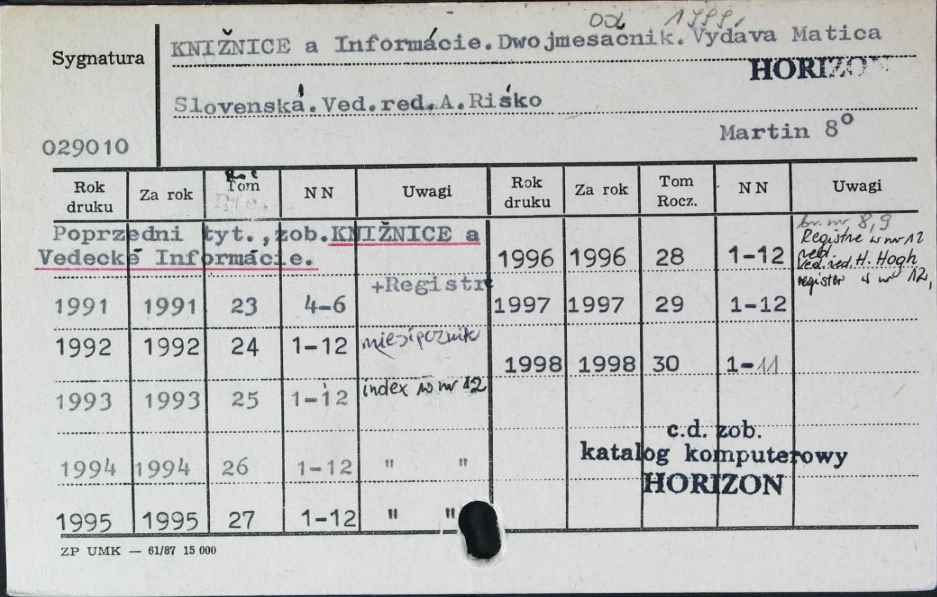 od 1999.
Sygnatura
KNIŽNICE a Informácie.Dwojmesačnik.Vydava Matica
HORIZON
Slovenská.Ved.red.A.Riśko
029010
Martin 8°
Rok druku Za rok Tom N N Uwagi Rok druku Za rok Tom Rocz. N N Uwagi
Poprzedni tyt.,zob.KNIŽNICE a
Vedecké Informácie.
br. nr 8,9
Registre w nr 12
1996 1996 28 1-12
Ved.red. H. Hogh
register w nr 12,
+Registr
1991 1991 23 4-6
1997 1997 29 1-12
1992 1992 24 1-12 miesięcznik
1998 1998 30 1-11
1993 1993 25 1-12 index w nr 12
c.d. zob.
katalog komputerowy
HORIZON
1994 1994 26 1-12 " "
1995 1995 27 1-12 " "
ZP UMK — 61/87 15 000